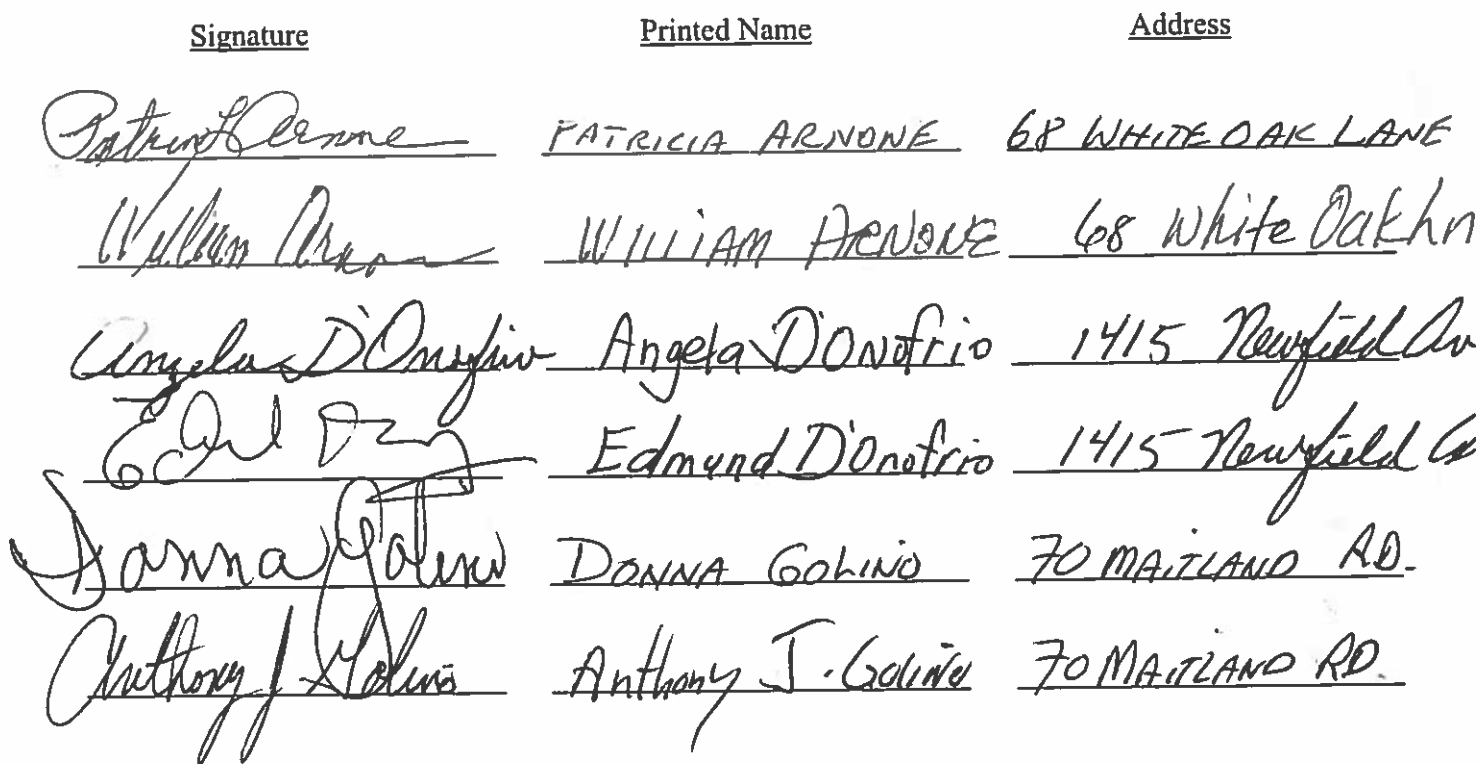 Signature Printed Name Address
Patricia Arnone PATRICIA ARNONE 68 WHITE OAK LANE
William Arnone WILLIAM ARNONE 68 White Oak Ln
Angela D'Onofrio Angela D'Onofrio 1415 Newfield Av
Edmund D'Onofrio 1415 Newfield
Donna Golino DONNA GOLINO 70 MAITLAND RD.
Anthony J Golino Anthony J. Golino 70 MAITLAND RD